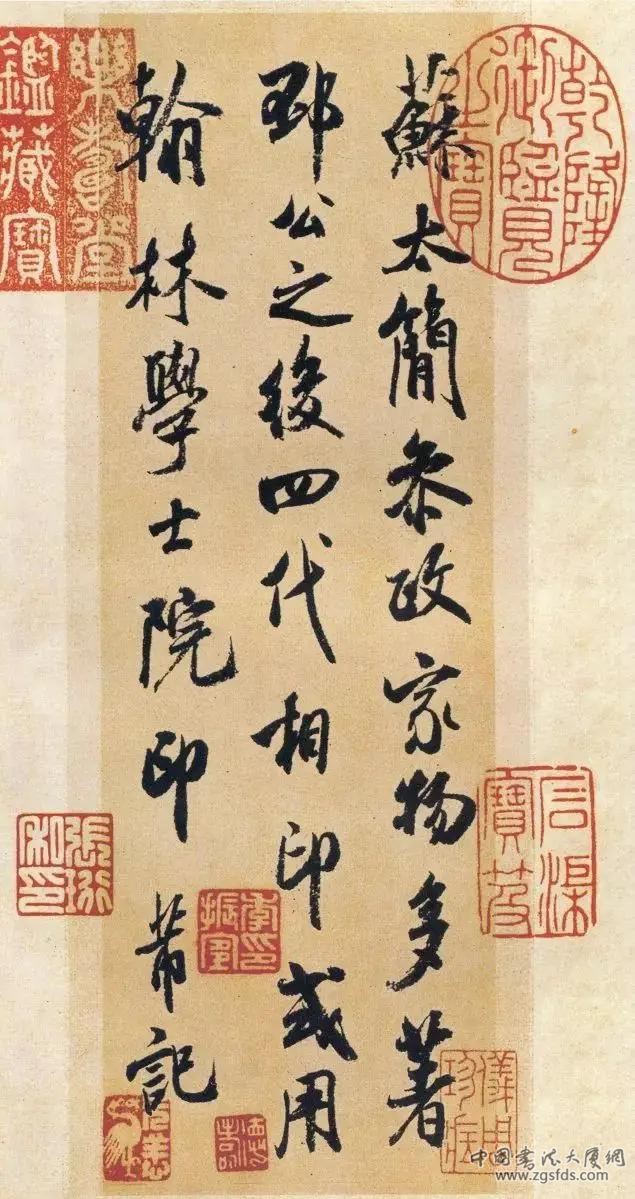 蘇太簡參政家物多著
邳公之後四代相印或用
翰林學士院印 芾記
乾隆御覽之寶
樂壽堂鑑藏寶
石渠寶笈
張珩私印
儀周珍藏
中國書法大廈網
www.zgsfds.com